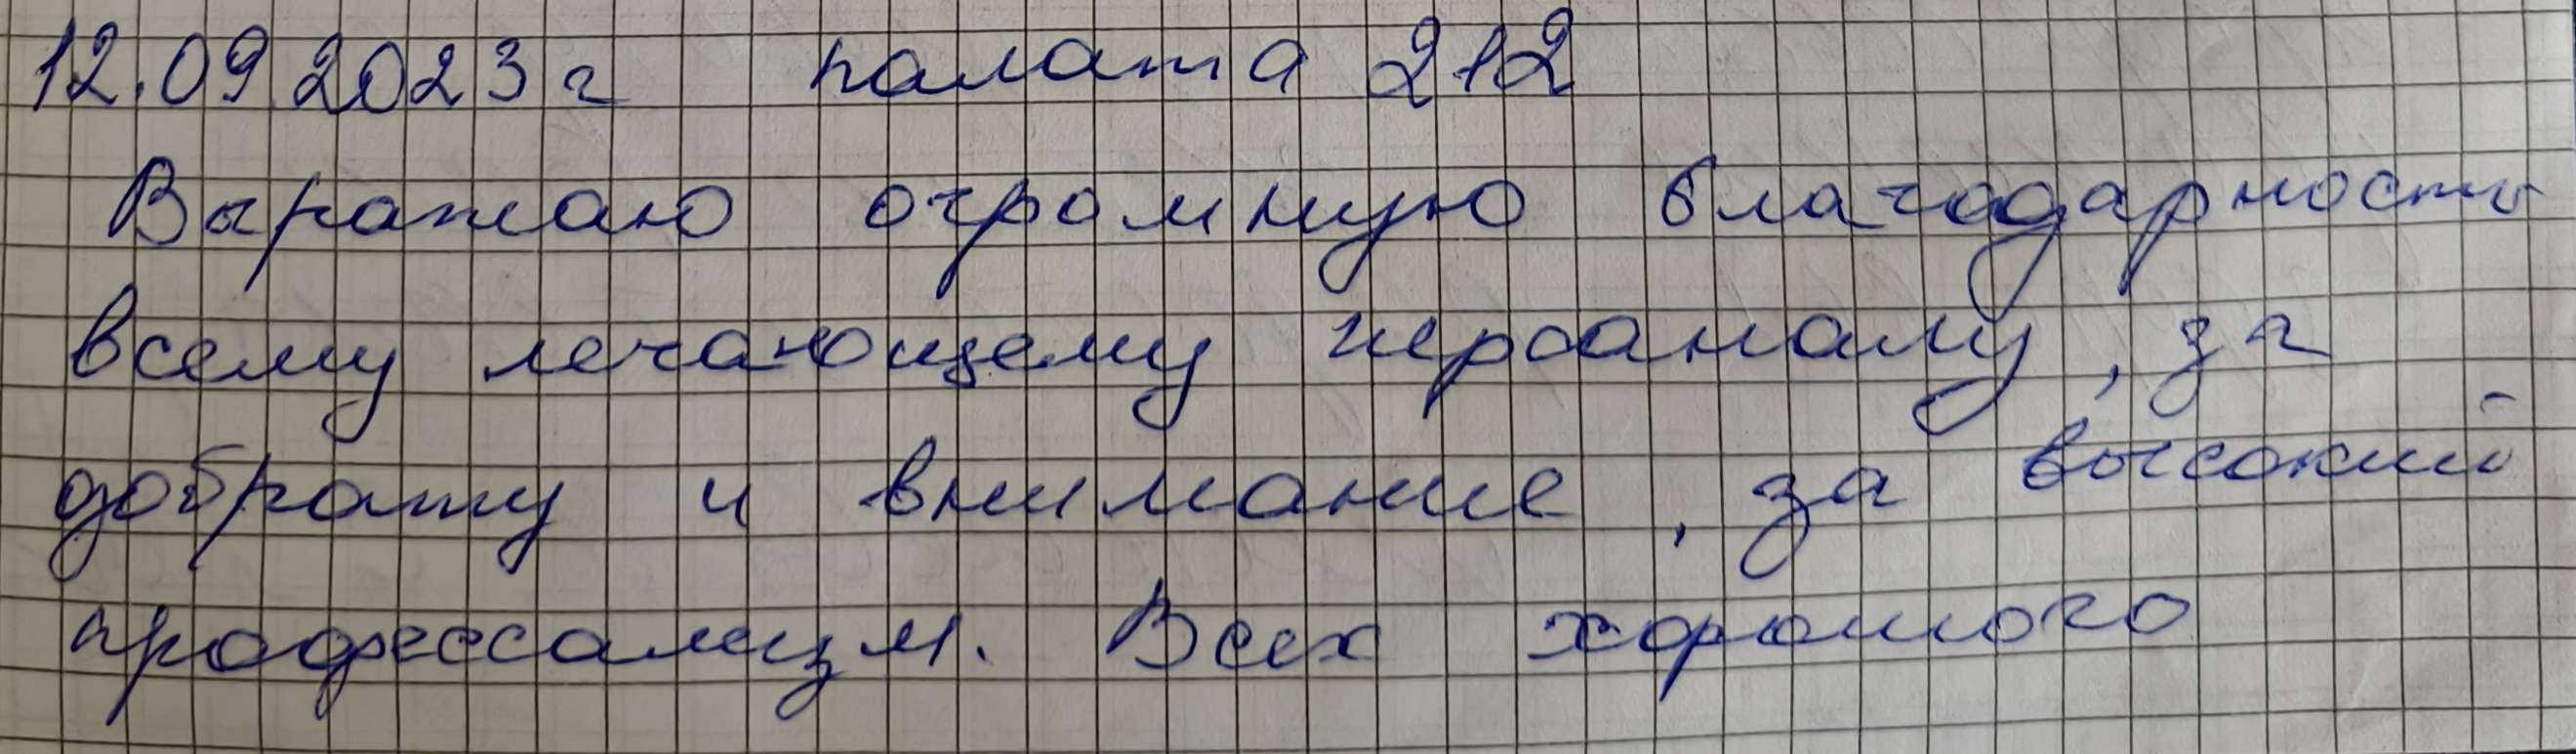 12.09.2023 г палата 212
Выражаю огромную благодарность
всему лечающему персоналу, за
доброту и внимание, за высокий
профессализм. Всех хорошого